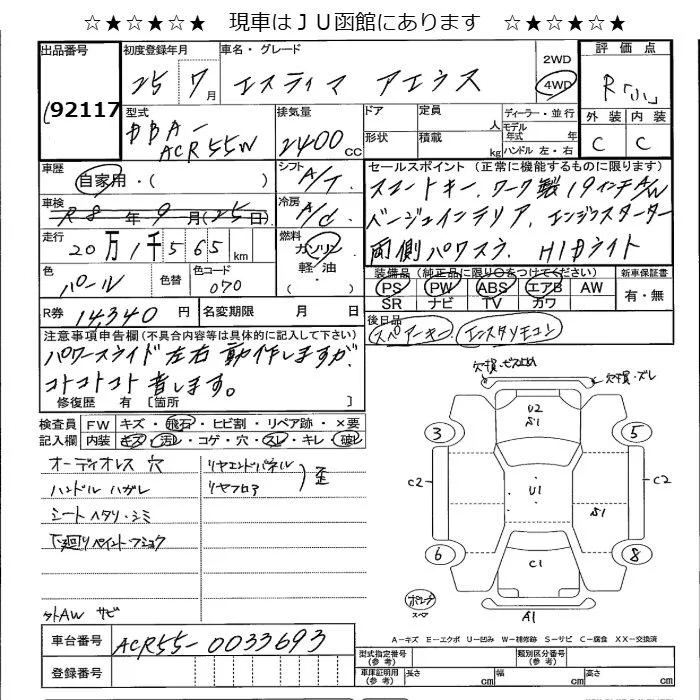 ☆★☆★☆★ 現車はＪＵ函館にあります ☆★☆★☆★
出品番号 初度登録年月 車名・グレード 評価点
92117 25 7月 エスティマ アエラス 2WD 4WD R「小」
型式 排気量 ドア 定員 人 ディーラー・並行 外装 内装
DBA-ACR55W 2400cc 形状 積載 kg モデル年式 年 ハンドル 左・右 C C
車歴 シフト セールスポイント(正常に機能するものに限ります)
自家用・( ) A/T スマートキー、ワーク製19インチA/W
車検 冷房 ベージュインテリア、エンジンスターター
R8年9月(25日) A/C 両側パワスラ、HIDライト
走行 燃料
20万1千565km ガソリン・軽油・( )
装備品(純正品に限り○をつけてください) 新車保証書
色 色替 色コード PS PW ABS エアB AW 有・無
パール 070 SR ナビ TV カワ
R券 14,340円 名変期限 月 日 後日品
スペアキー エンスタリモコン
注意事項申告欄(不具合内容等は具体的に記入して下さい)
パワースライド左右動作しますが
コトコトコト音します。
修復歴 有 〔箇所 〕
検査員記入欄 FW キズ・飛石・ヒビ割・リペア跡・×要
内装 キズ・汚レ・コゲ・穴・スレ・キレ・破レ
オーディオレス穴 リヤエンドパネル 歪
ハンドルハガレ リヤフロア
シートヘタリ・シミ
下廻りペイント・フショク
外AW サビ
欠損・ビス止め 欠損・ズレ
U2
S1
3 5
C2 U1 S1 C2
6 8
C1
スペ
A1
A－キズ E－エクボ U－凹み W－補修跡 S－サビ C－腐食 XX－交換済
車台番号 ACR55-0033693
登録番号
型式指定番号(参考) 類別区分番号(参考)
車庫証明用(参考) 長さ cm 幅 cm 高さ cm